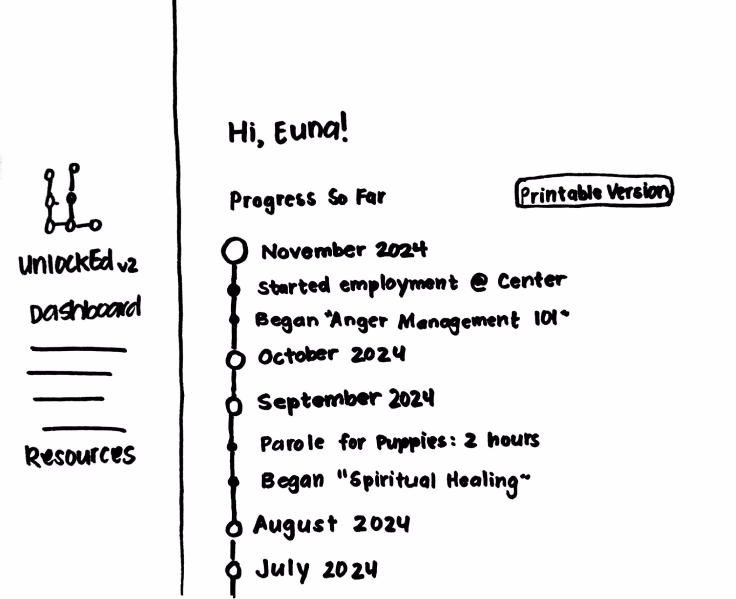 UnlockEd v2
Dashboard
Resources
Hi, Euna!
Progress So Far
Printable Version
November 2024
Started employment @ Center
Began "Anger Management 101"
October 2024
September 2024
Parole for Puppies: 2 hours
Began "Spiritual Healing"
August 2024
July 2024